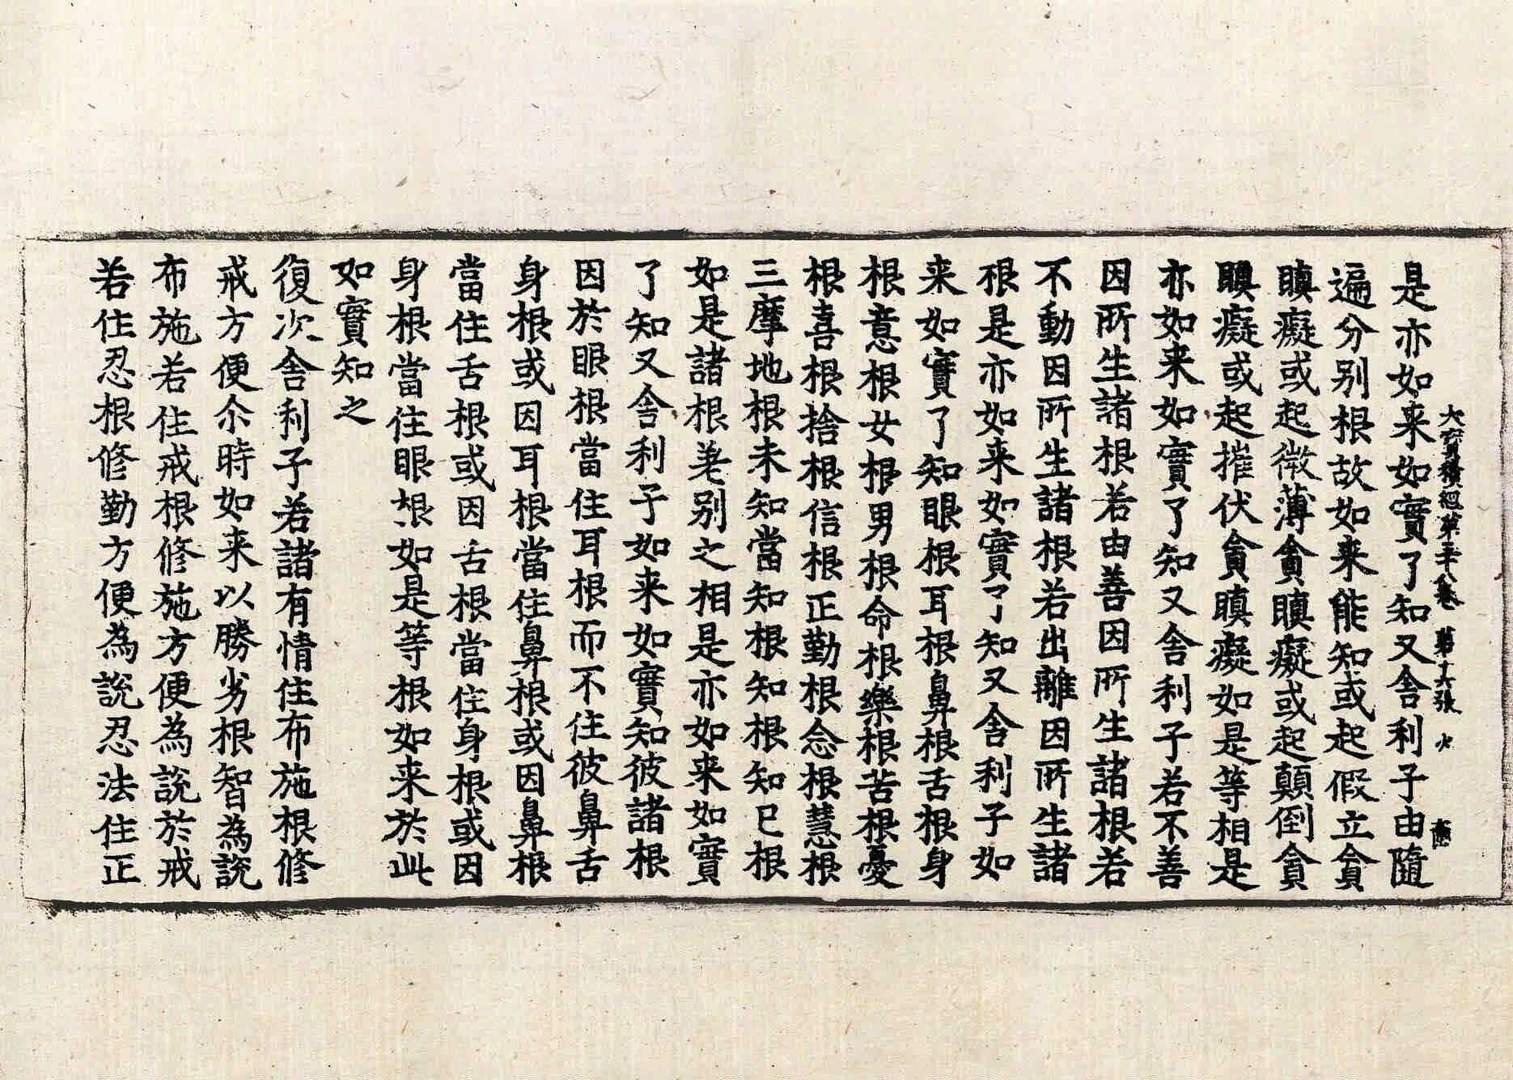 大寶積經第三十八卷　第十六張　火
是亦如来如實了知又舎利子由隨
遍分别根故如来能知或起假立貪
瞋癡或起微薄貪瞋癡或起顛倒貪
瞋癡或起摧伏貪瞋癡如是等相是
亦如来如實了知又舎利子若不善
因所生諸根若由善因所生諸根若
不動因所生諸根若出離因所生諸
根是亦如来如實了知又舎利子如
来如實了知眼根耳根鼻根舌根身
根意根女根男根命根樂根苦根憂
根喜根捨根信根正勤根念根慧根
三摩地根未知當知根知根知已根
如是諸根差别之相是亦如来如實
了知又舎利子如来如實知彼諸根
因於眼根當住耳根而不住彼鼻舌
身根或因耳根當住鼻根或因鼻根
當住舌根或因舌根當住身根或因
身根當住眼根如是等根如来於此
如實知之
復次舎利子若諸有情住布施根修
戒方便尒時如来以勝劣根智為説
布施若住戒根修施方便為説於戒
若住忍根修勤方便為説忍法住正